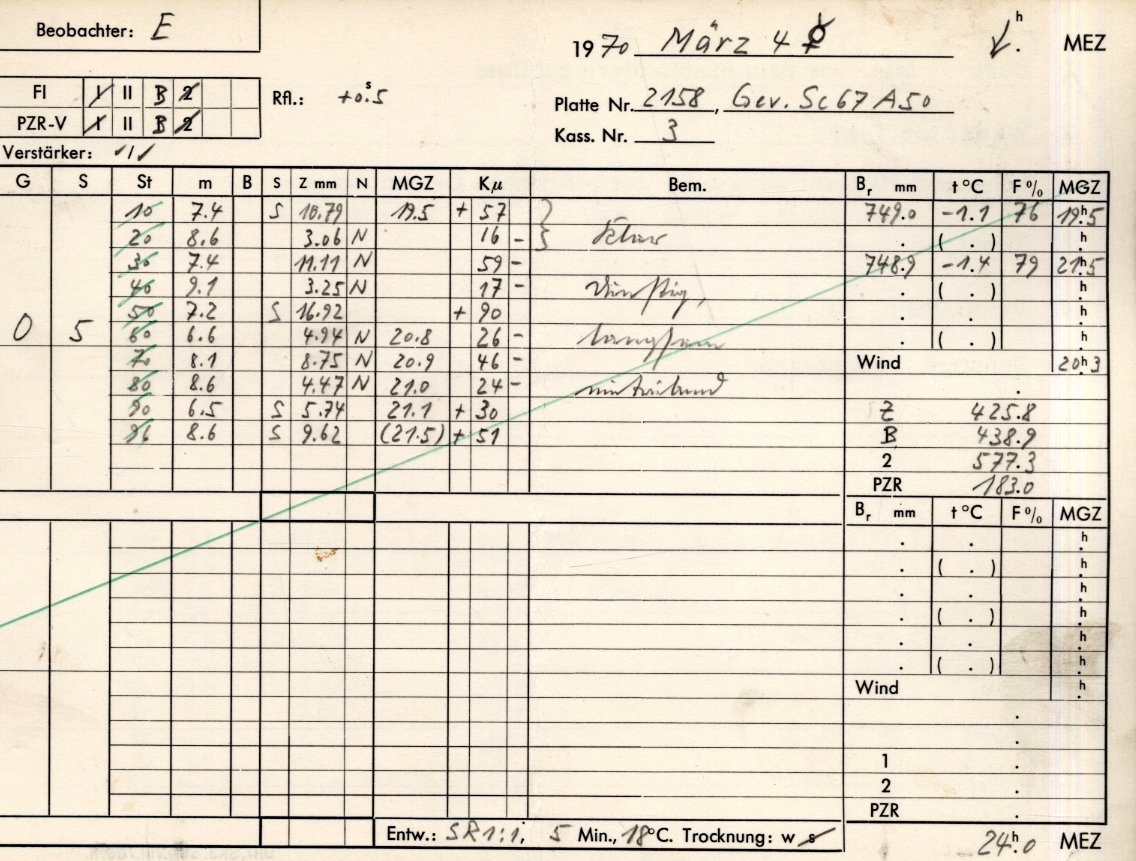 Beobachter: E
1970 März 4 ☿ h . MEZ
FI I II B 2
PZR-V I II B 2
Rfl.: +0.ˢ5
Platte Nr. 2158, Gev. Sc 67 A 50
Kass. Nr. 3
Verstärker:
G S St m B S Z mm N MGZ Kμ Bem. Bᵣ mm t°C F% MGZ
10 7.4 S 10.79 19.5 + 57 749.0 -1.1 76 19ʰ.5
20 8.6 3.06 N 16 - klar . ( . ) ʰ.
30 7.4 11.11 N 59 - 748.9 -1.4 79 21ʰ.5
40 9.1 3.25 N 17 - dunstig, . ( . ) ʰ.
50 7.2 S 16.92 + 90 . . ʰ.
0 5 60 6.6 4.94 N 20.8 26 - langsam . ( . ) ʰ.
70 8.1 8.75 N 20.9 46 - Wind 20ʰ.3
80 8.6 4.47 N 21.0 24 - .
90 6.5 S 5.74 21.1 + 30 Z 425.8
96 8.6 S 9.62 (21.5) + 51 B 438.9
2 577.3
PZR 183.0
Bᵣ mm t°C F% MGZ
. . ʰ.
. ( . ) ʰ.
. . ʰ.
. ( . ) ʰ.
. . ʰ.
. ( . ) ʰ.
Wind ʰ.
.
.
1 .
2 .
PZR .
Entw.: SR 1:1, 5 Min., 18°C. Trocknung: w s
24ʰ.0 MEZ